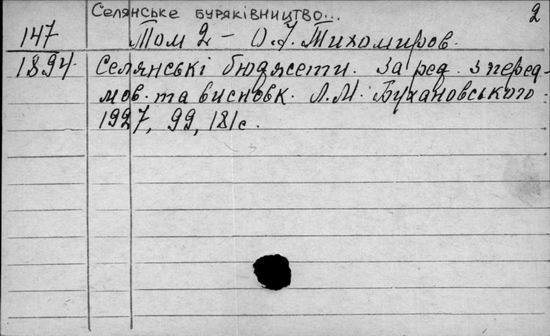 Селянське буряківництво... 2
147 Том 2 – О.І. Тихомиров.
1894 Селянські бюджети. За ред. з перед-
мов. та висновк. Л.М. Бухановського.
1927, 99, 181с.